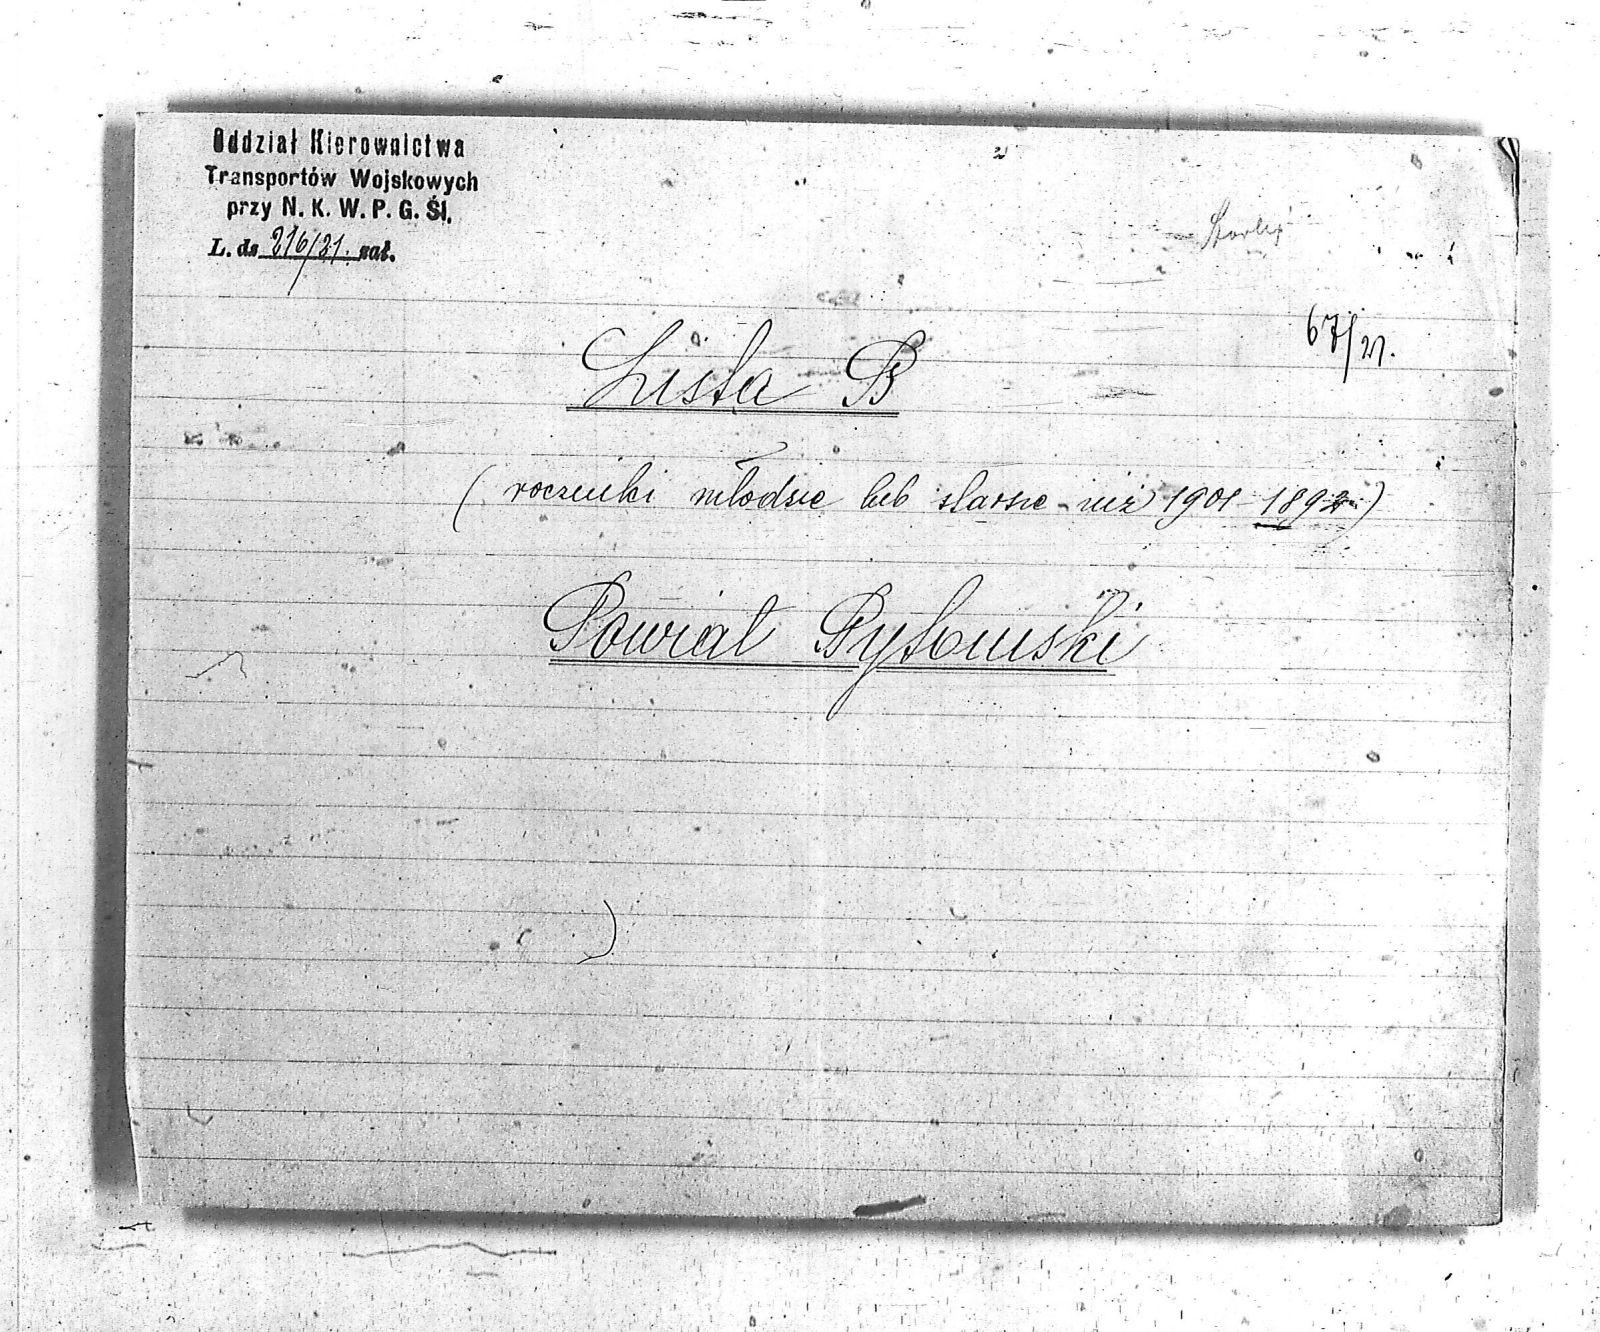 Oddział Kierownictwa
Transportów Wojskowych
przy N. K. W. P. G. Śl.
L. ds 216/21. zał.
67/21.
Lista B
( roczniki młodsze lub starsze niż 1901 - 1892 )
Powiat Rybnicki